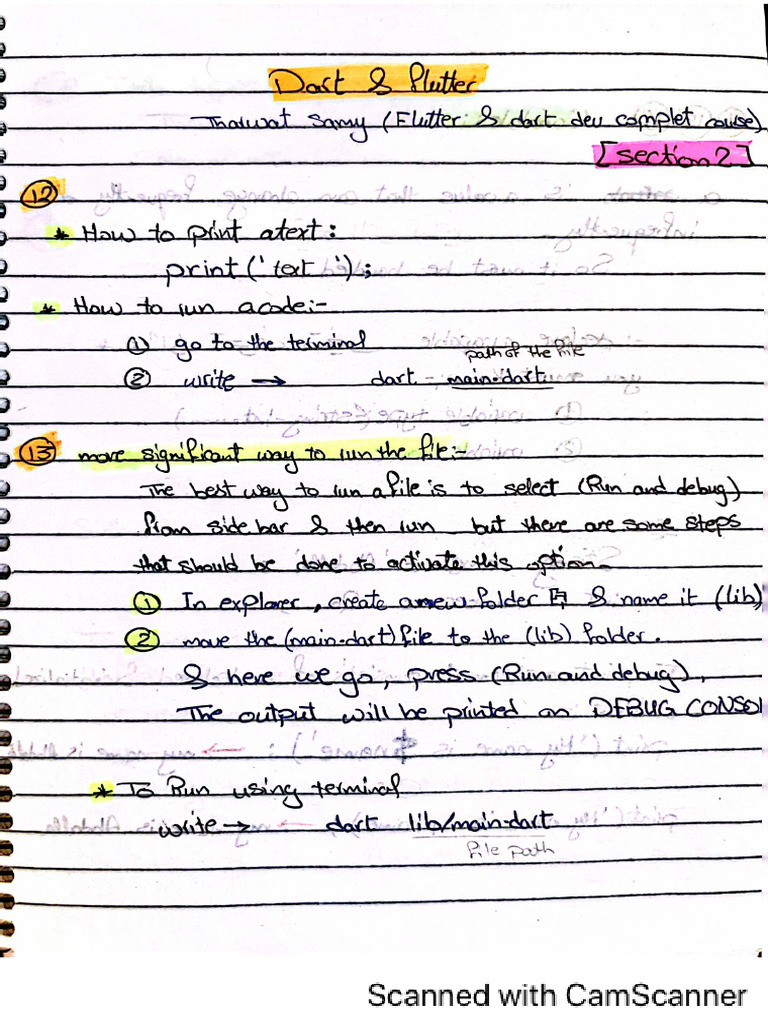 Dart & Flutter
Tharwat Samy (Flutter & dart dev complet course)
[section 2]
12
* How to print a text :
print ('text') ;
* How to run a code:-
① go to the terminal
path of the file
② write → dart - main.dart
13 more significant way to run the file:-
The best way to run a file is to select (Run and debug)
from side bar & then run but there are some steps
that should be done to activate this option.
① In explorer, create a new folder & name it (lib)
② move the (main.dart) file to the (lib) folder.
& here we go, press (Run and debug),
The output will be printed on DEBUG CONSOL
* To Run using terminal
write → dart lib/main.dart
file path
Scanned with CamScanner